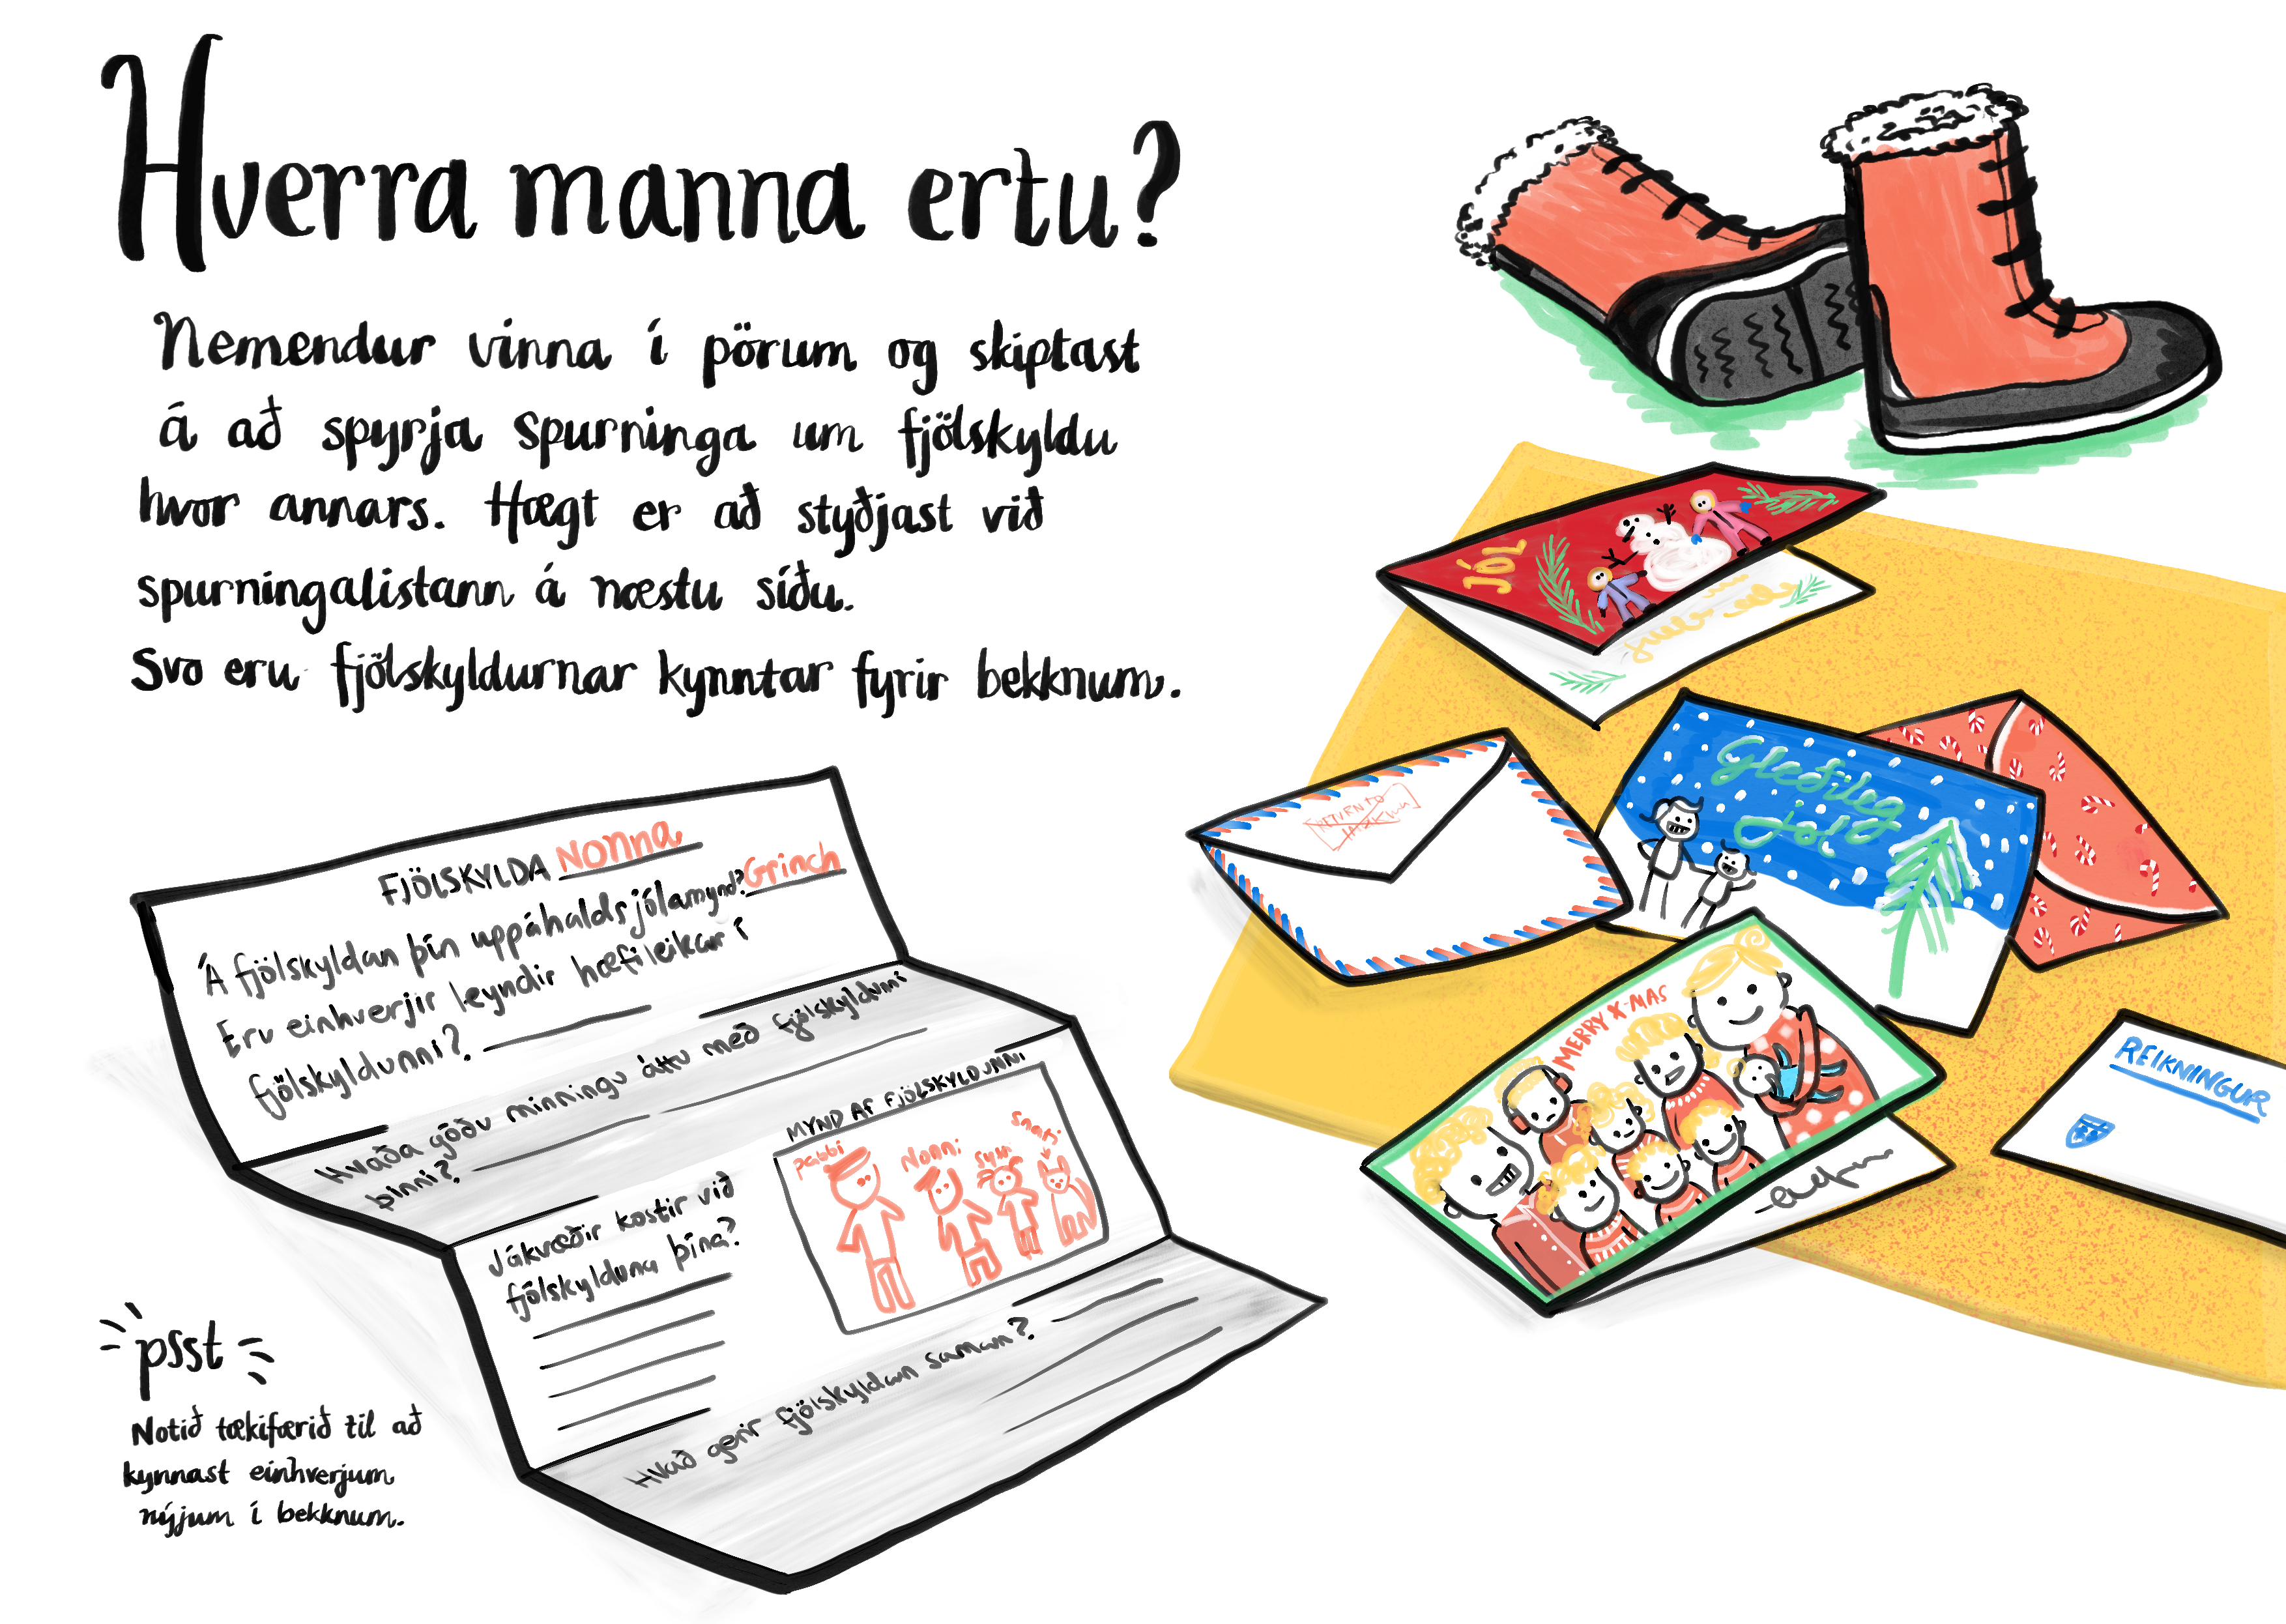 Hverra manna ertu?
Nemendur vinna í pörum og skiptast
á að spyrja spurninga um fjölskyldu
hvor annars. Hægt er að styðjast við
spurningalistann á næstu síðu.
Svo eru fjölskyldurnar kynntar fyrir bekknum.
FJÖLSKYLDA Nonna
Á fjölskyldan þín uppáhaldsjólamynd? Grinch
Eru einhverjir leyndir hæfileikar í
fjölskyldunni?
Hvaða góðu minningu áttu með fjölskyldunni
þinni?
Jákvæðir kostir við
fjölskylduna þína?
MYND AF FJÖLSKYLDUNNI
pabbi
Nonni
Hvað gerir fjölskyldan saman?
psst
Notið tækifærið til að
kynnast einhverjum
nýjum í bekknum.
JÓL
Gleðileg
Jól
MERRY X-MAS
REIKNINGUR